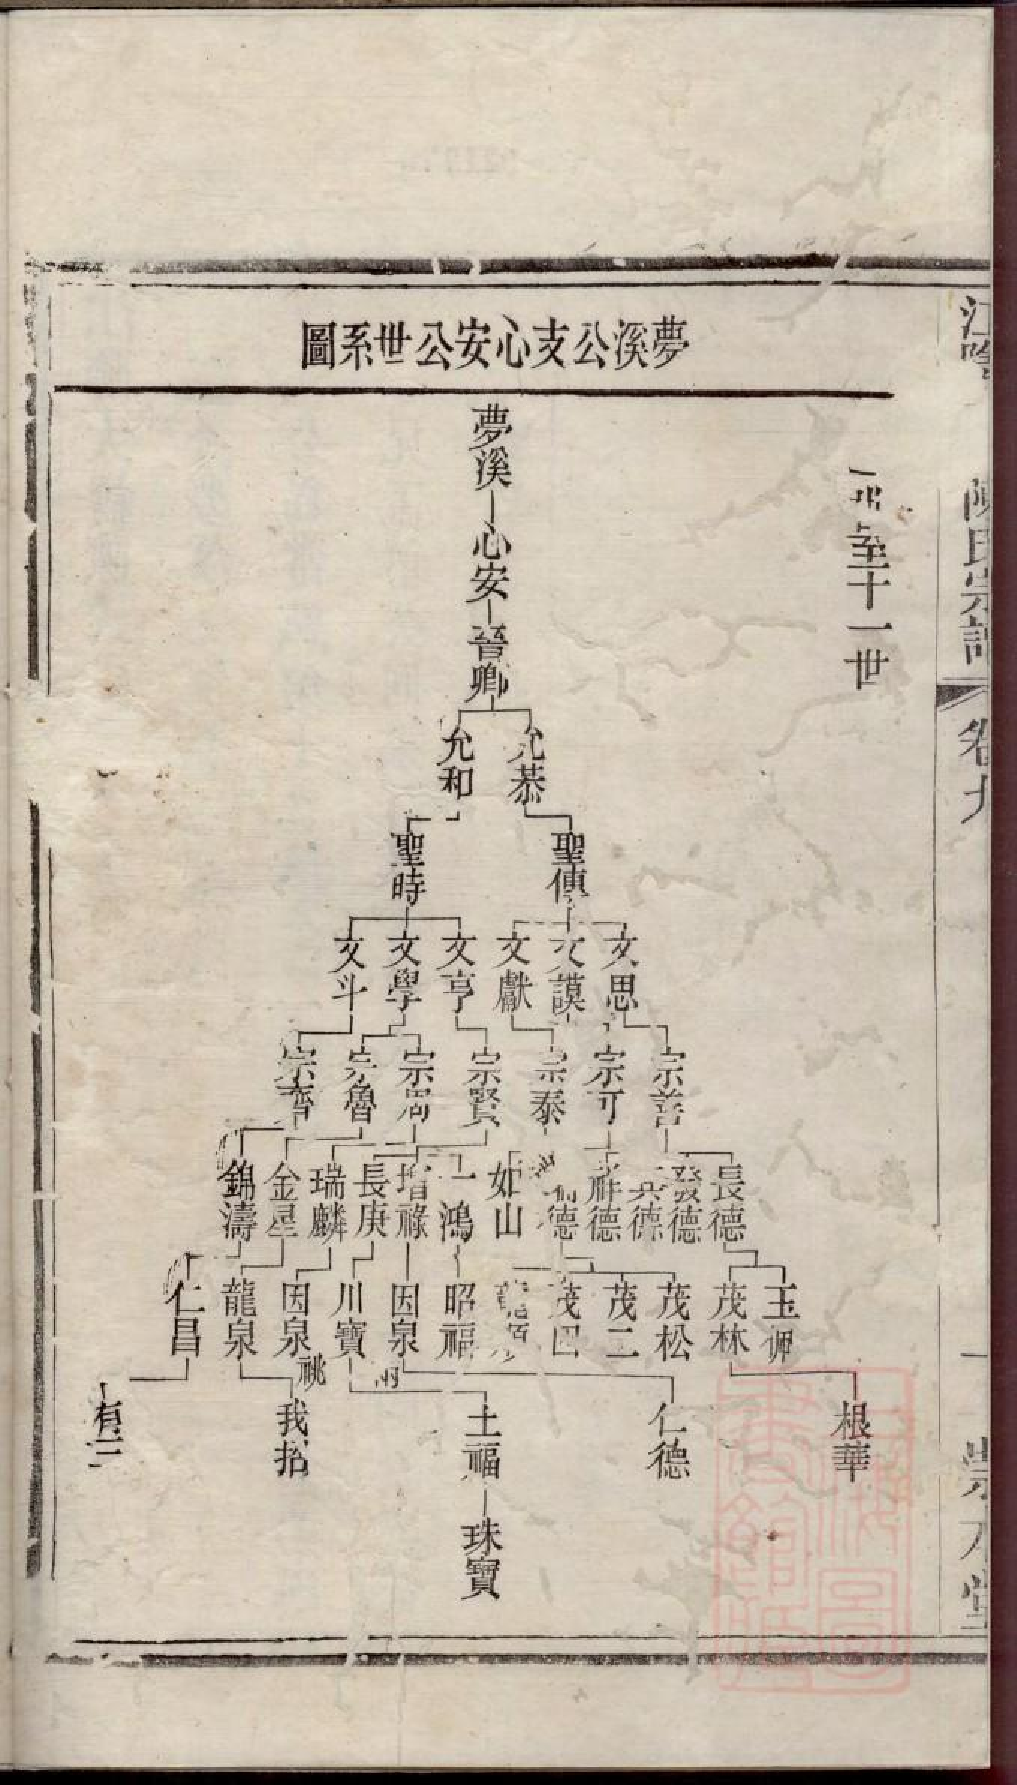 夢溪公支心安公世系圖
至十一世
夢溪
心安
晉卿
允恭
允和
聖傳
聖時
文思
文謨
文獻
文亨
文學
文斗
宗善
宗可
宗泰
宗賢
宗周
宗魯
宗齊
長德
發德
英德
祥德
德
如山
一鴻
增祿
長庚
瑞麟
金星
錦濤
玉
茂林
茂松
茂二
茂四
昭福
因泉
川寶
因泉
龍泉
仁昌
祧
根華
仁德
土福
我招
有三
珠寶
江陰
陳氏宗譜
卷九
一